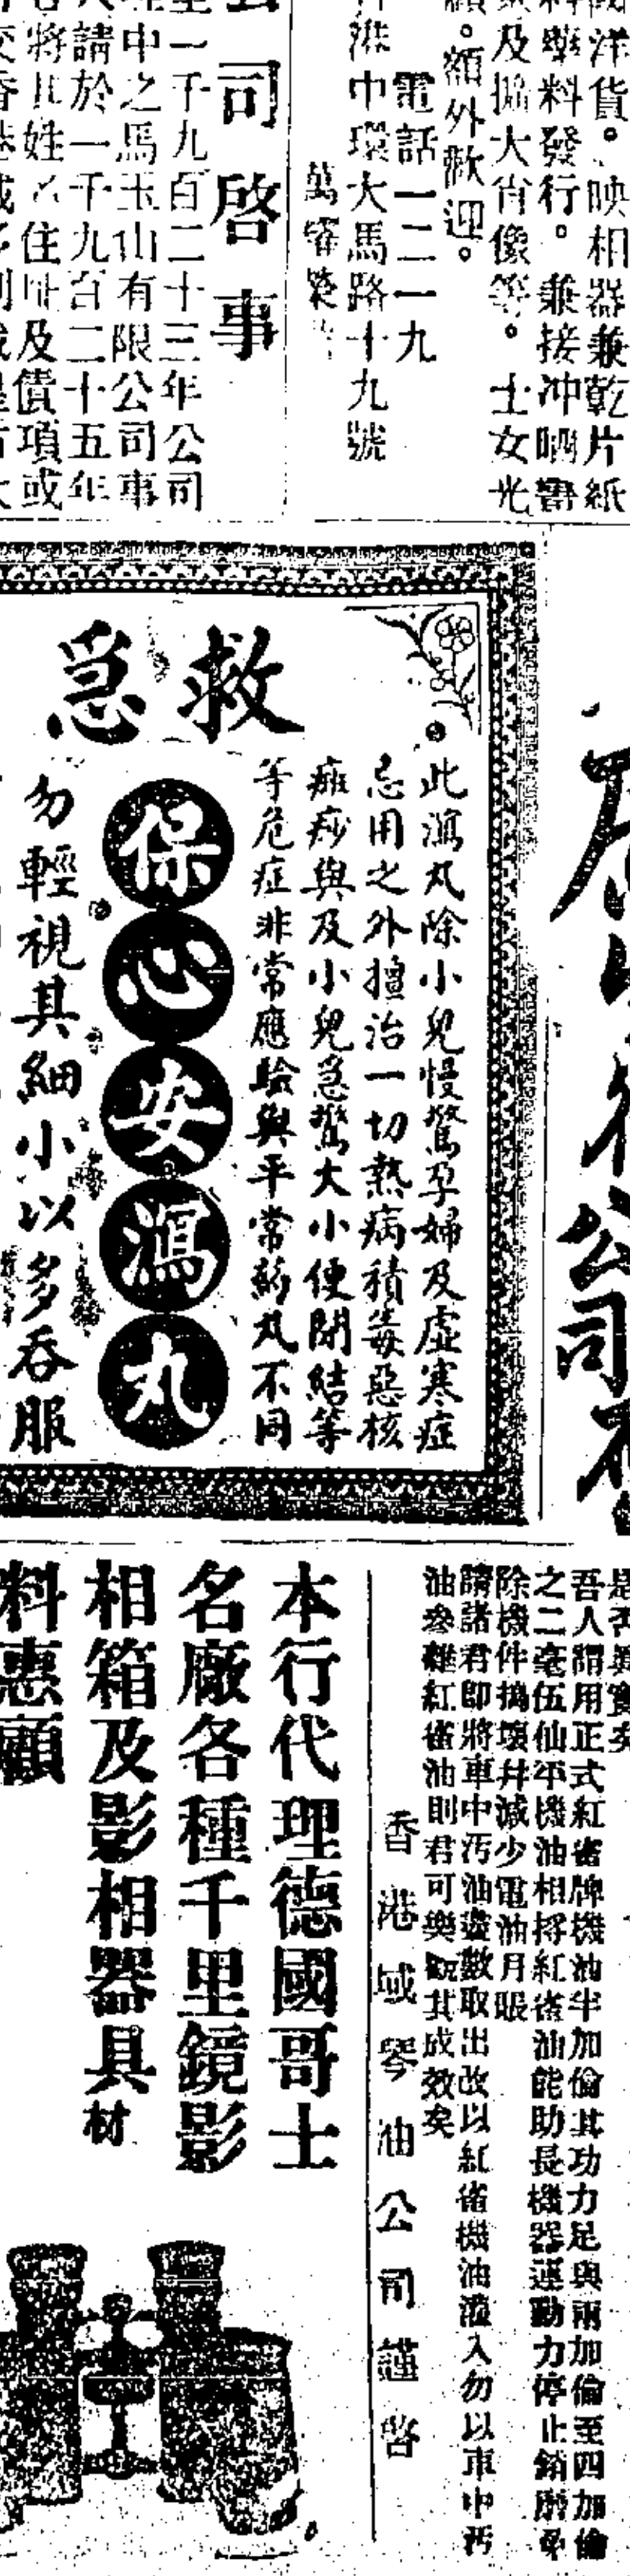 國洋貨。映相器兼乾片紙
料藥料發行。兼接冲晒
及擴大肖像等。士女光
顧。額外歡迎。
電話一二一九
港中環大馬路十九號
司啓事
一千九百二十三年公司
中之馬玉山有限公司事
請於一千九百二十五年
將其姓名住址及債項或
救急
此瀉丸除小兒慢驚孕婦及虛寒症
忌用之外擅治一切熱病積毒惡核
痧與及小兒急驚大小便閉結等
等危症非常應驗與平常葯丸不同
保心安瀉丸
勿輕視其細小以多吞服
公司
吾人謂用正式紅雀牌機油半加倫其功力足與兩加倫至四加倫
之二毫伍仙平機油相捋紅雀油能助長機器運動力停止銷磨免
除機件搗壞并減少電油月賬
請諸君即將車中汚油盡數取出改以紅雀機油滬入勿以車中汚
油參雜紅雀油則君可樂觀其成效矣
香港域琴油公司謹啓
本行代理德國哥士
名廠各種千里鏡影
相箱及影相器具材
料惠顧